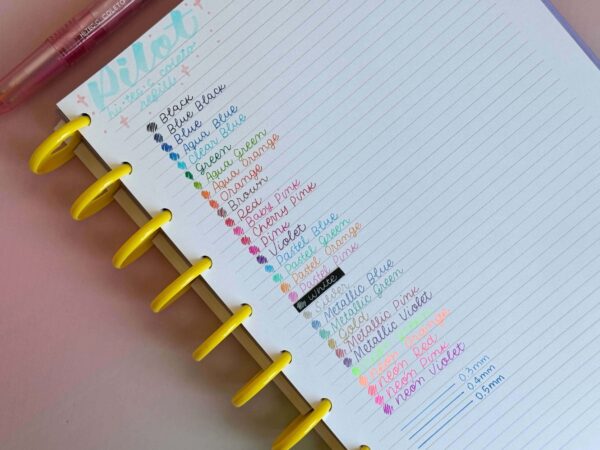 HI-TEC-C COLETO
Pilot
hi-tec-c coleto
refills
Black
Blue Black
Blue
Aqua Blue
Clear Blue
Green
Aqua Green
Aqua Orange
Orange
Brown
Red
Baby Pink
Cherry Pink
Pink
Violet
Pastel Blue
Pastel Green
Pastel Orange
Pastel Pink
White
Silver
Metallic Blue
Metallic Green
Gold
Metallic Pink
Metallic Violet
Neon Orange
Neon Red
Neon Pink
Neon Violet
0.3mm
0.4mm
0.5mm